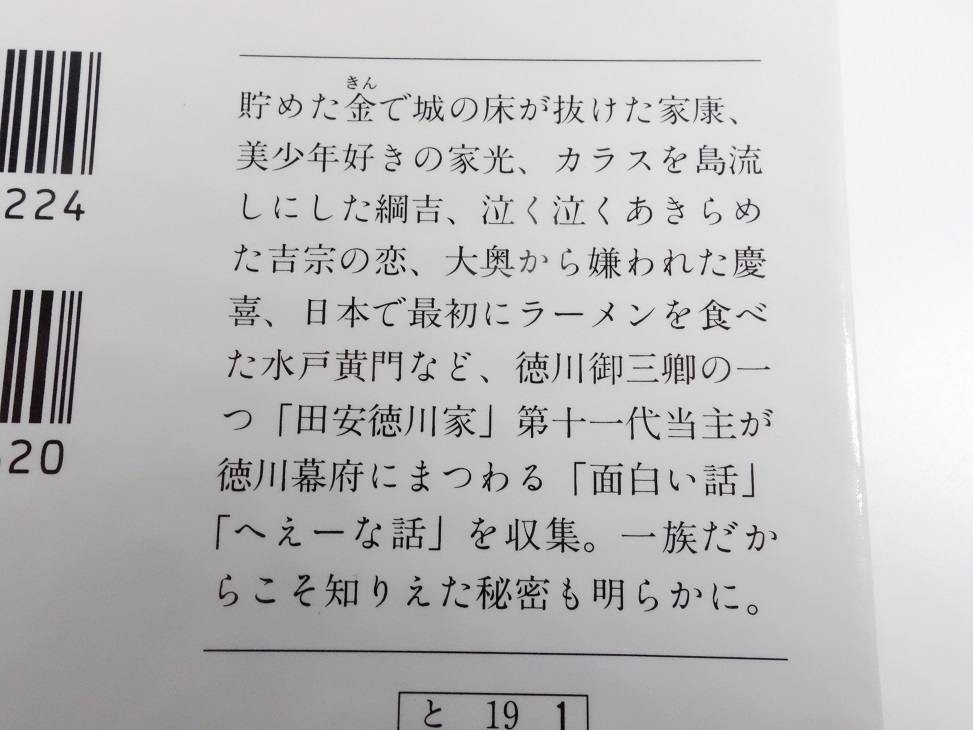 224
20
きん
貯めた金で城の床が抜けた家康、
美少年好きの家光、カラスを島流
しにした綱吉、泣く泣くあきらめ
た吉宗の恋、大奥から嫌われた慶
喜、日本で最初にラーメンを食べ
た水戸黄門など、徳川御三卿の一
つ「田安徳川家」第十一代当主が
徳川幕府にまつわる「面白い話」
「へえーな話」を収集。一族だか
らこそ知りえた秘密も明らかに。
と 19 1